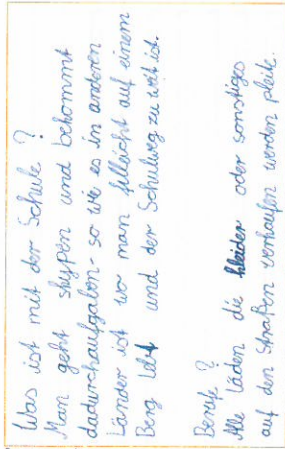 Was ist mit der Schule ?
Man geht skypen und bekommt
dadurchaufgaben - so wie es in anderen
Länder ist wo man filleicht auf einem
Berg lebt und der Schulweg zu weit ist.
Berufe ?
Alle Läden die kleider oder sonstiges
auf den Straßen verkaufen werden pleite.